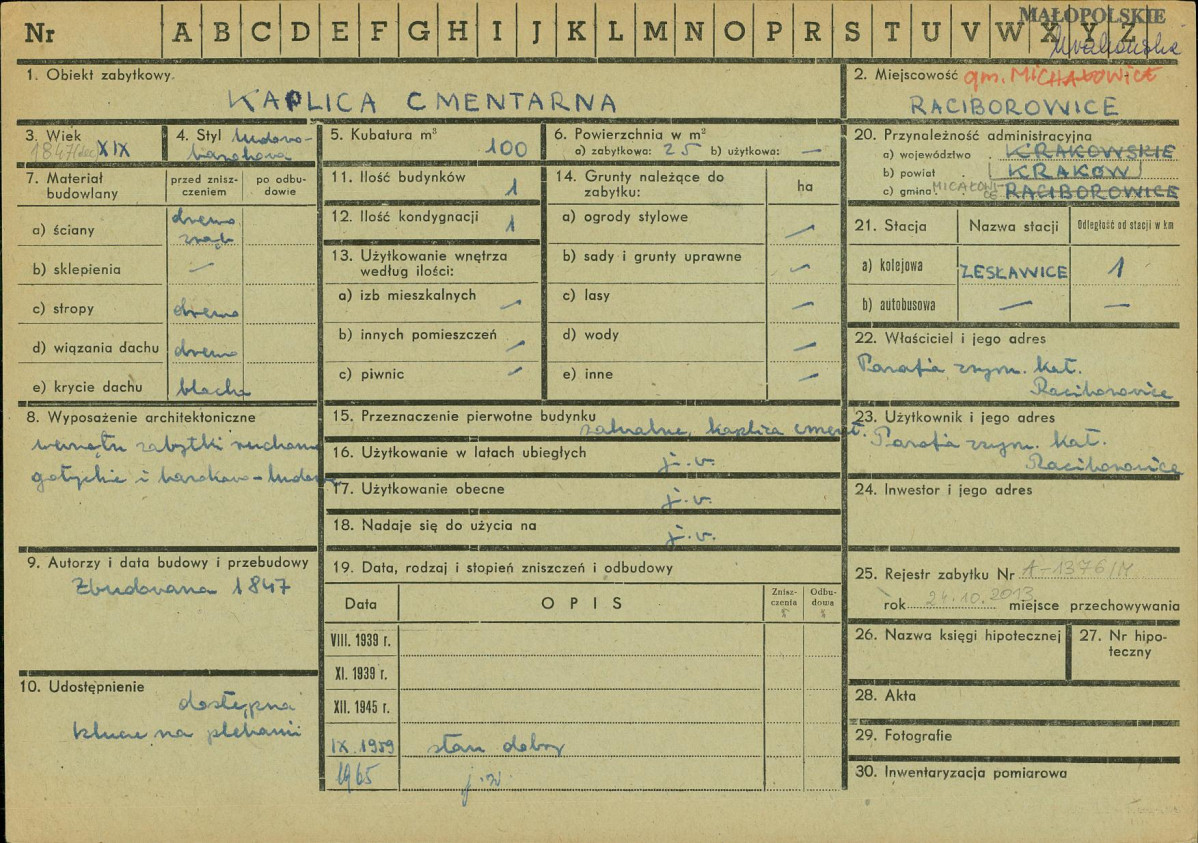 Nr A B C D E F G H I J K L M N O P R S T U V W X Y Z
MAŁOPOLSKIE
1. Obiekt zabytkowy.
KAPLICA CMENTARNA
2. Miejscowość gm. MICHAŁOWICE
RACIBOROWICE
3. Wiek
XIX
4. Styl ludowo-
barokowa
5. Kubatura m³
100
6. Powierzchnia w m²
a) zabytkowa: 25 b) użytkowa: —
7. Materiał
budowlany
przed znisz-
czeniem
po odbu-
dowie
a) ściany
drewno
zrąb
b) sklepienia —
c) stropy drewno
d) wiązania dachu drewno
e) krycie dachu blacha
8. Wyposażenie architektoniczne
wewnątrz zabytki ruchome
gotyckie i barokowo-ludowe
9. Autorzy i data budowy i przebudowy
Zbudowana 1847
10. Udostępnienie
dostępna
klucze na plebanii
11. Ilość budynków
1
12. Ilość kondygnacji
1
13. Użytkowanie wnętrza
według ilości:
a) izb mieszkalnych —
b) innych pomieszczeń —
c) piwnic —
14. Grunty należące do
zabytku:
ha
a) ogrody stylowe —
b) sady i grunty uprawne —
c) lasy —
d) wody —
e) inne —
15. Przeznaczenie pierwotne budynku
sakralne, kaplica cment.
16. Użytkowanie w latach ubiegłych
j.w.
17. Użytkowanie obecne
j.w.
18. Nadaje się do użycia na
j.w.
19. Data, rodzaj i stopień zniszczeń i odbudowy
Data OPIS
Znisz-
czenia
%
Odbu-
dowa
%
VIII. 1939 r.
XI. 1939 r.
XII. 1945 r.
IX. 1959 stan dobry
1965 j.w
20. Przynależność administracyjna
a) województwo . KRAKOWSKIE
b) powiat . KRAKÓW
c) gmina . RACIBOROWICE
21. Stacja
Nazwa stacji
Odległość od stacji w km
a) kolejowa ZESŁAWICE 1
b) autobusowa — —
22. Właściciel i jego adres
Parafia rzym. kat.
Raciborowice
23. Użytkownik i jego adres
Parafia rzym. kat.
Raciborowice
24. Inwestor i jego adres
25. Rejestr zabytku Nr A-1376/M
rok 24.10.2013 miejsce przechowywania
26. Nazwa księgi hipotecznej
27. Nr hipo-
teczny
28. Akta
29. Fotografie
30. Inwentaryzacja pomiarowa